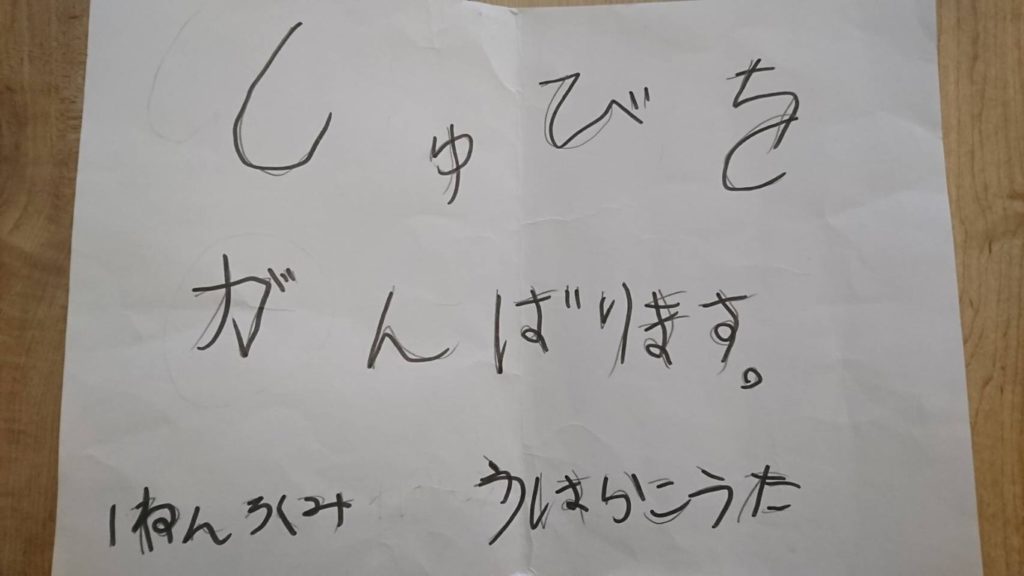 しゅびを
がんばります。
1ねんろくみ うしはらこうた